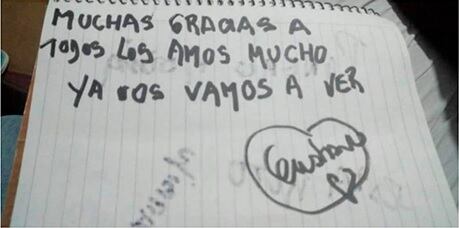 MUCHAS GRACIAS A
TODOS LOS AMOS MUCHO
YA NOS VAMOS A VER
Gustavo